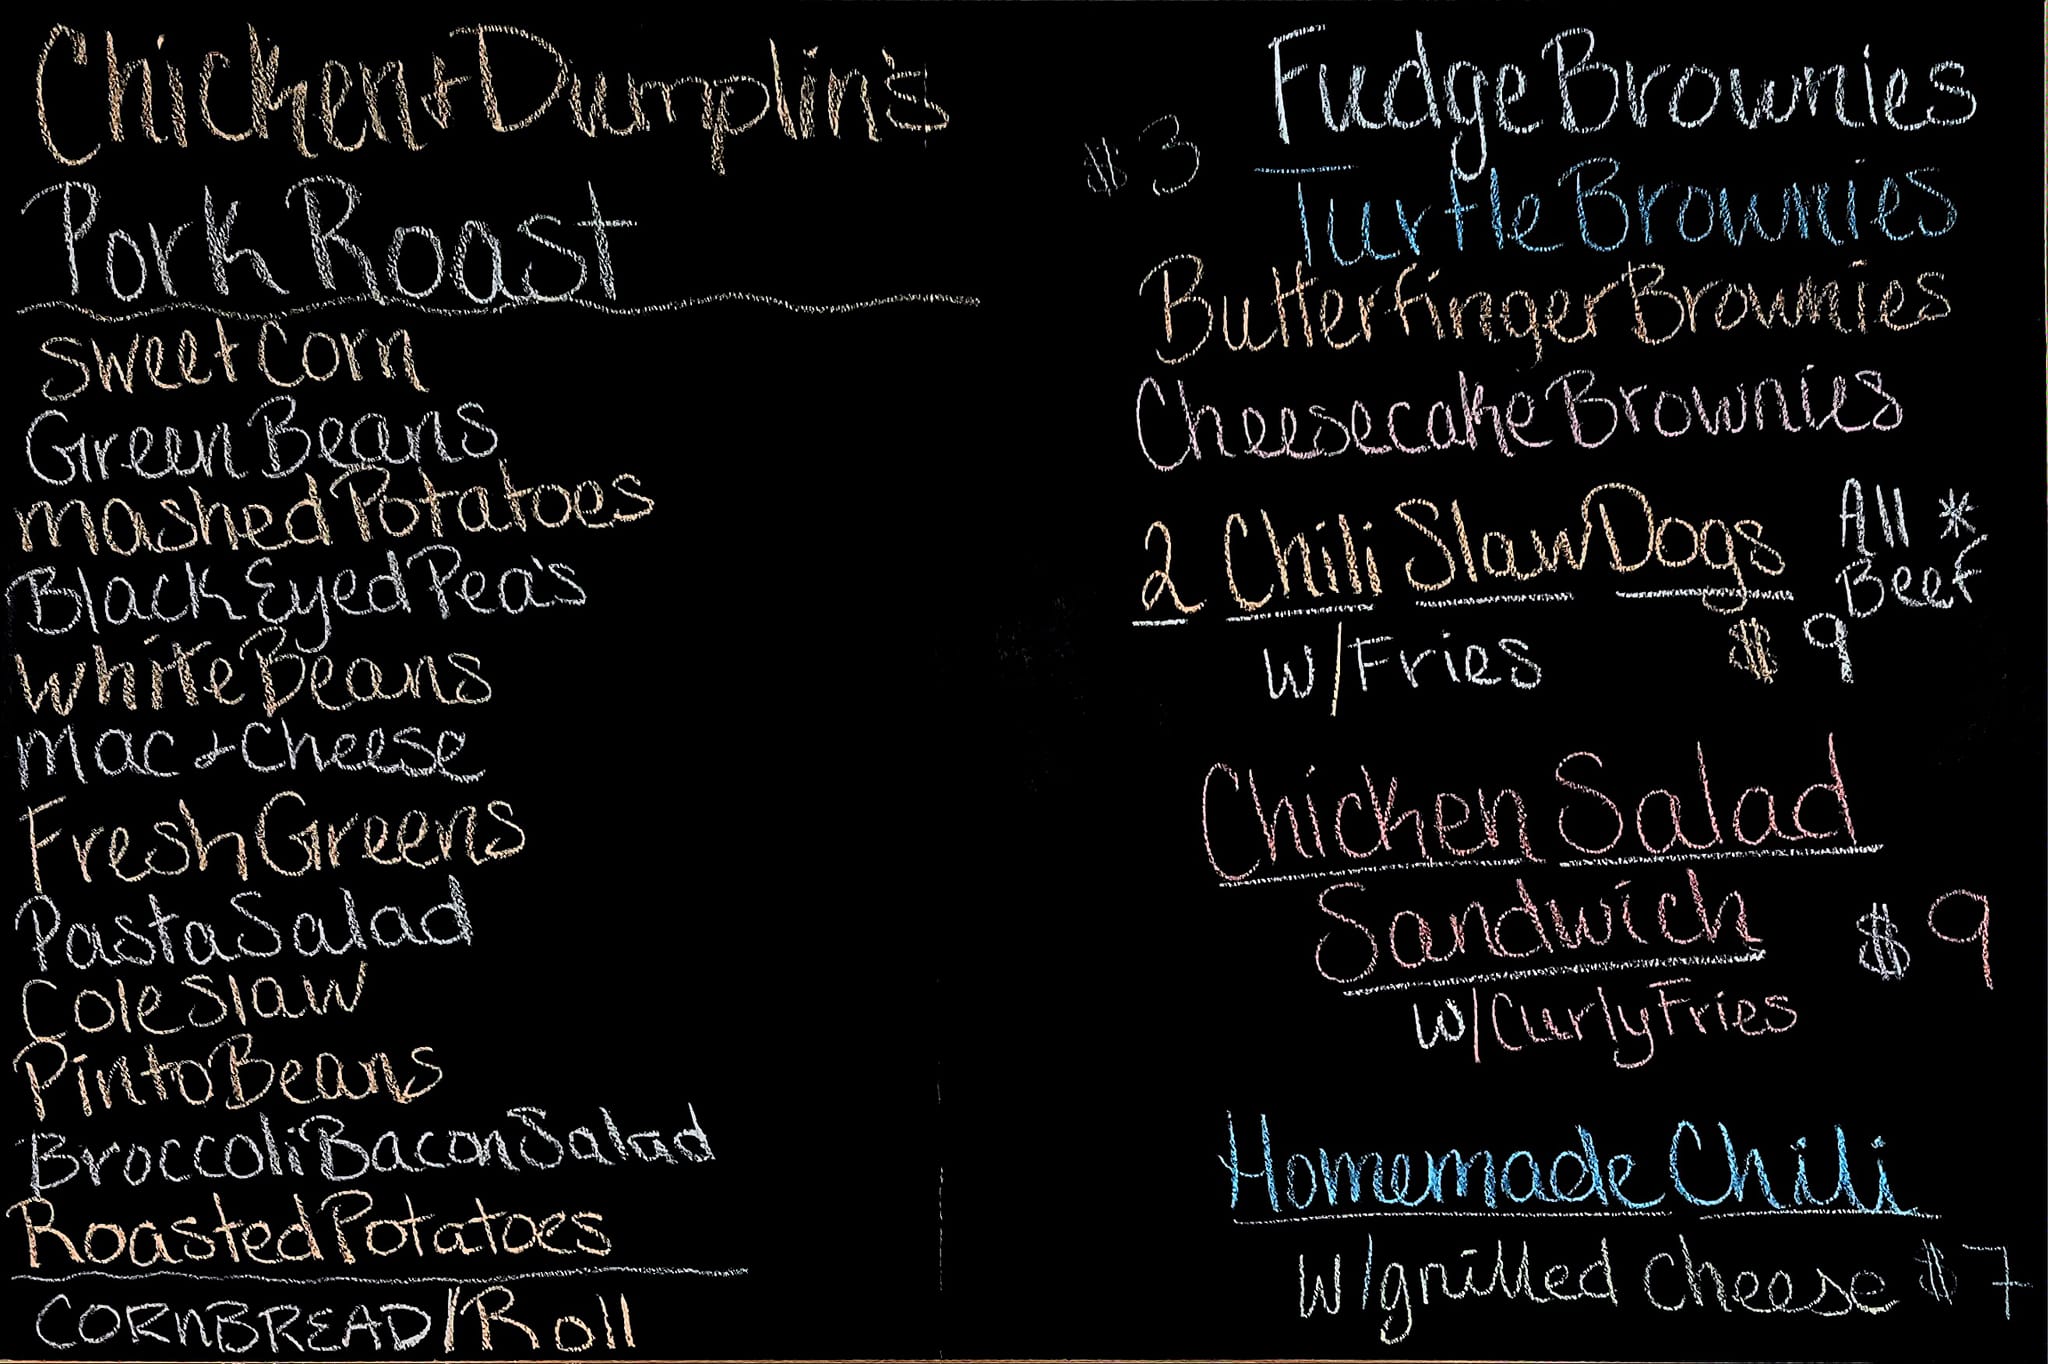 Chicken + Dumplin's
Pork Roast
Sweet Corn
Green Beans
Mashed Potatoes
Black Eyed Pea's
White Beans
Mac + Cheese
Fresh Greens
Pasta Salad
Cole Slaw
Pinto Beans
Broccoli Bacon Salad
Roasted Potatoes
CORNBREAD/Roll
Fudge Brownies
$3
Turtle Brownies
Butterfinger Brownies
Cheesecake Brownies
2 Chili Slaw Dogs
All *
Beef
w/Fries $9
Chicken Salad
Sandwich $9
w/Curly Fries
Homemade Chili
w/grilled cheese $7